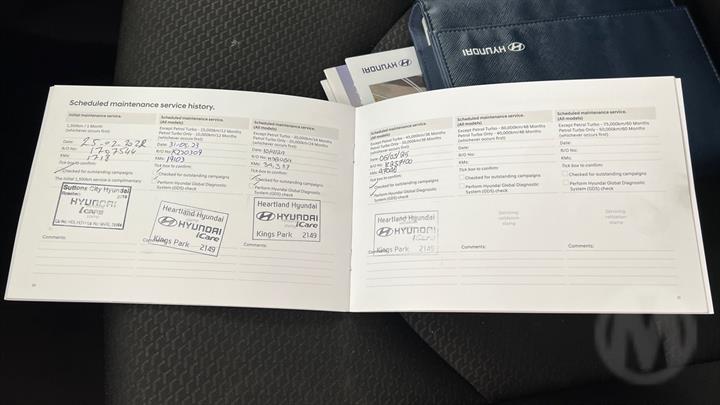 HYUNDAI
HYUNDAI
Scheduled maintenance service history.
Initial maintenance service.
1,500km / 1 Month
(whichever occurs first)
Date: 25-02-2022
R/O No: 1707544
KMs: 1718
Tick box to confirm:
Checked for outstanding campaigns
Perform Hyundai Global Diagnostic
System (GDS) check
The initial 1,500km service is complimentary
Suttons City Hyundai
HYUNDAI
iCare
Comments:
Scheduled maintenance service.
(All models)
Except Petrol Turbo - 15,000km/12 Months
Petrol Turbo Only - 10,000km/12 Months
(whichever occurs first)
Date: 31-05-23
R/O No: K230309
KMs: 19103
Tick box to confirm:
Checked for outstanding campaigns
Perform Hyundai Global Diagnostic
System (GDS) check
Heartland Hyundai
HYUNDAI
iCare
Kings Park 2149
Comments:
Scheduled maintenance service.
(All models)
Except Petrol Turbo - 30,000km/24 Months
Petrol Turbo Only - 20,000km/24 Months
(whichever occurs first)
Date:
R/O No:
KMs:
Tick box to confirm:
Checked for outstanding campaigns
Perform Hyundai Global Diagnostic
System (GDS) check
Heartland Hyundai
HYUNDAI
iCare
Kings Park 2149
Comments:
Scheduled maintenance service.
(All models)
Except Petrol Turbo - 45,000km/36 Months
Petrol Turbo Only - 30,000km/36 Months
(whichever occurs first)
Date:
R/O No:
KMs:
Tick box to confirm:
Checked for outstanding campaigns
Perform Hyundai Global Diagnostic
System (GDS) check
Heartland Hyundai
HYUNDAI
iCare
Kings Park 2149
Comments:
Scheduled maintenance service.
(All models)
Except Petrol Turbo - 60,000km/48 Months
Petrol Turbo Only - 40,000km/48 Months
(whichever occurs first)
Date:
R/O No:
KMs:
Tick box to confirm:
Checked for outstanding campaigns
Perform Hyundai Global Diagnostic
System (GDS) check
Servicing
validation
stamp
Comments:
Scheduled maintenance service.
(All models)
Except Petrol Turbo - 75,000km/60 Months
Petrol Turbo Only - 50,000km/60 Months
(whichever occurs first)
Date:
R/O No:
KMs:
Tick box to confirm:
Checked for outstanding campaigns
Perform Hyundai Global Diagnostic
System (GDS) check
Servicing
validation
stamp
Comments:
M